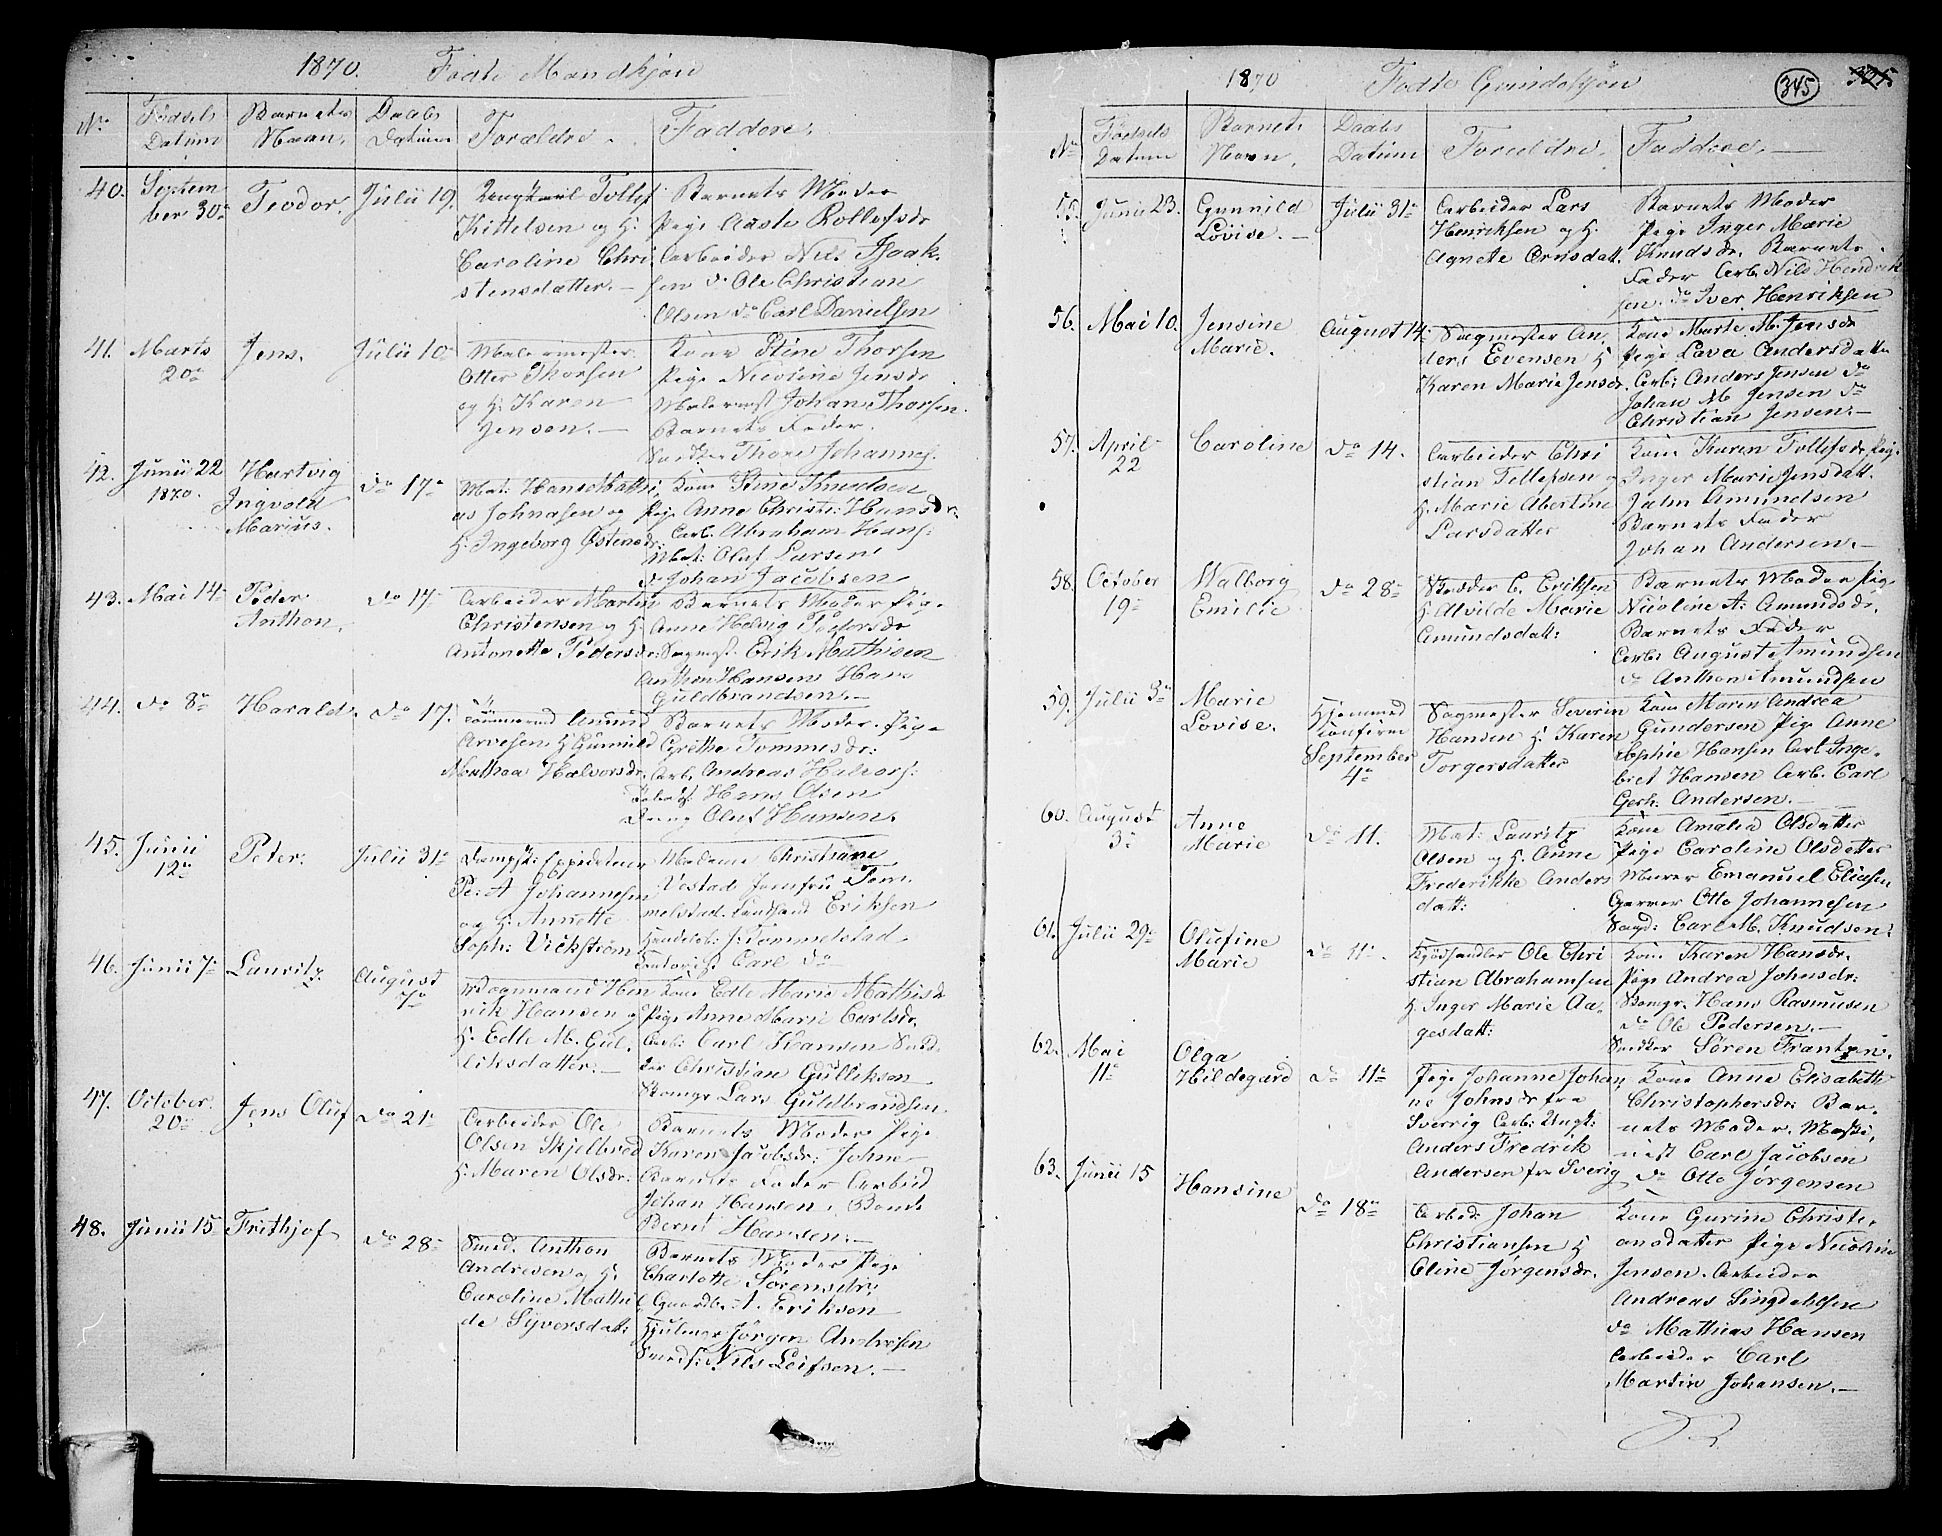 1870. Fødte Mandkjøn
No Fødsels Datum Barnets Navn. Daabs Datum Forældre. Faddere.
40. September 30te Teodor Julii 19.
Ungkarl Tollef
Kittelsen og H:
Caroline Chri
stensdatter. —
Barnets Moder
Pige Aaste Rollefsdr
Arbeider Nils Isaak
sen do Ole Christian
Olsen do Carl Danielsen
41. Marts 20de Jens. Julii 10de
Malermester
Otter Thorsen
og H: Karen
Jensen. —
Kone Stine Thorsen
Pige Nicoline Jensdr
Malermest Johan Thorsen.
Barnets Fader.
Snedker Thors Johannes.
42. Junii 22 1870. Hartvig Ingvold Marius. do 17de
Mat: Hans Mathi
as Johnasen og
H: Ingeborg Østensdr:
Kone Stine Knudsen
Pige Anne Christi: Hansdr:
Arb. Abraham Hans:
Mat: Oluf Larsen
do Johan Jacobsen
43. Mai 14de Peder Anthon. do 17de
Arbeider Martin
Christensen og H:
Antonette Pedersdr:
Barnets Moder Pige
Anne Helvig Pedersdr
Sagmest. Erik Mathisen
Anthon Hansen Hans
Guldbrandsen. —
44. do 8de Harald. do 17.
Tømmermd Amund
Arvesen H Gunnild
Mathea Halvorsdr.
Barnets Moder. Pige
Grethe Tommesdr:
Arb. Andreas Halvors:
Hans Olsen
Dreng Oluf Hansen.
45. Junii 12te Peter. Julii 31te
Dampsk: Expiditeur
Pe: A Johannesen
og H: Annette
Soph: Vickstrøm
Madame Christiane
Vestad Jomfru Tom
melstad. Eriksen
Handelsb: J: Tommelstad
Carl do
46. Junii 7de Lauritz August 7de
Vognmand Hen
rik Hansen og
H. Edle M. Gul
liksdatter. —
Kone Edle Marie Mathisdr
Pige Anne Marie Carlsdr.
Arb: Carl Hansen Sned
ker Christian Gulliksen
Skomgr Lars Guldbrandsen
47. October 20de Jens Oluf do 21de
Arbeider Ole
Olsen Skjelbred
H: Maren Olsdr:
Barnets Moder Pige
Karen Jacobsdr: Johne
Barnets Fader Arbeid
Johan Hansen, Bonde
Bernt Hansen. —
48. Junii 15 Frithjof do 28de
Smed. Anthon
Andresen og H:
Caroline Mathil
de Syversdatt:
Barnets Moder Pige
Charlotte Sørensdr:
Gaardbr: A. Eriksen
Hjulmgr Jørgen Andresen
Smeds: Nils Leifsen. —
1870 Fødte Qvindekjøn 345
No Fødsels Datum Barnets Navn. Daabs Datum Forældre. Faddere. —
55. Junii 23. Gunnild Lovise. — Julii 31te
Arbeider Lars
Henriksen og H.
Agnete Arnsdatt.
Barnets Moder
Pige Inger Marie
Knudsdr. Barnets
Fader Arb. Nils Hendrik
sen. do Iver Henriksen
56. Mai 10. Jensine Marie. August 14.
Sagmester An
ders Evensen H
Karen Marie Jensdr.
Kone Marte M. Jensdr
Pige Lava Andersdatter
Arb: Anders Jensen do
Johan M Jensen do
Christian Jensen. —
57. April 22 Caroline do 14.
Arbeider Chri
stian Tellefsen og
H. Marie Abertine
Larsdatter
Kone Karen Tollefsdr. Pige
Inger Marie Jensdatt.
John Amundsen
Barnets Fader
Johan Andersen. —
58. October 19de Walborg Emilie do 28de
Skræder C. Eriksen
H Alvilde Marie
Amundsdatt:
Barnets Moder Pige
Nicoline A: Amundsdr.
Barnets Fader
Arb: August Amundsen
do Anthon Amundsen
59. Julii 3de Marie Lovise. Hjemmed Confirm September 4de
Sagmester Severin
Hansen H. Karen
Torgersdatter
Kone Maren Andrea
Gundersen Pige Anne
Sophie Hansen Arb Inge
bret Hansen Arb. Carl
Gerh. Andersen. —
60. August 3de Anne Marie do 11.
Mat: Lauritz
Olsen og H. Anne
Frederikke Anders
datt:
Kone Amalia Olsdatter
Pige Caroline Olsdatter
Murer Emanuel Eliasen
Garver Otto Johannesen
Sagd: Carl M. Knudsen:
61. Julii 29de Olufine Marie do 11te.
Kjødhandler Ole Chri
stian Abrahamsen
H. Inger Marie Aa
gesdatt:
Kone Karen Hansdr.
Pige Andrea Johnsdr:
Skomgr. Hans Rasmusen
do Ole Pedersen. —
Snedker Søren Frantzen.
62. Mai 11te Olga Hildegard do 11te
Pige Johanne Johan
ne Johnsdr fra
Sverrig Arb: Ungk:
Anders Fredrik
Andersen fra Sverig
Kone Anne Elisabeth
Christophersdr: Bar
nets Moder. Maski
nist Carl Jacobsen
do Otto Jørgensen
63. Junii 15 Hansine do 18de
Arbed: Johan
Christiansen H
Oline Jørgensdr.
Kone Gurine Christi
ansdatter Pige Nicoline
Jensen. Arbeider
Andreas Singdahlsen
do Mathias Hansen
Arbeider Carl
Martin Johansen. —